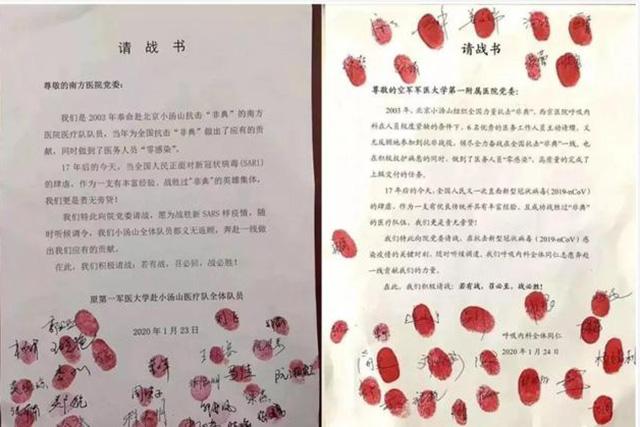 请战书
尊敬的南方医院党委：
我们是2003年奉命赴北京小汤山抗击“非典”的南方
医院医疗队队员，当年为全国抗击“非典”做出了应有的贡
献，同时做到了医务人员“零感染”。
17年后的今天，当全国人民正面对新冠状病毒(SARI)
的肆虐，作为一支有丰富经验、战胜过“非典”的英雄集体，
我们更是责无旁贷！
我们特此向院党委请战，愿为战胜新SARS样疫情，随
时听候调令，我们小汤山全体队员都义无返顾，奔赴一线做
出我们应有的贡献。
在此，我们积极请战：若有战，召必回，战必胜！
原第一军医大学赴小汤山医疗队全体队员
2020年1月23日
请战书
尊敬的空军军医大学第一附属医院党委：
2003年，北京小汤山组织全国力量抗击“非典”，西京医院呼吸内
科在人员极度紧缺的条件下，6名优秀的医务工作人员主动请缨，义
无反顾地参加到抗非战役，倾尽全力奋战在全国抗击“非典”一线，也
在积极救护病患的同时，做到了医务人员“零感染”，高质量的完成了
上级交付的任务。
17年后的今天，全国人民又一次直面新型冠状病毒（2019-nCoV）
的肆虐，作为一支有优良传统并具有丰富经验，且成功战胜过“非典”
的医疗队伍，我们更是责无旁贷！
我们特此向院党委请战，在抗击新型冠状病毒（2019-nCoV）感
染疫情的关键时刻，随时听候调遣，我们呼吸内科全体同仁志愿奔赴
一线贡献我们的力量。
在此，我们积极请战：若有战，召必至，战必胜！
呼吸内科全体同仁
2020年1月24日